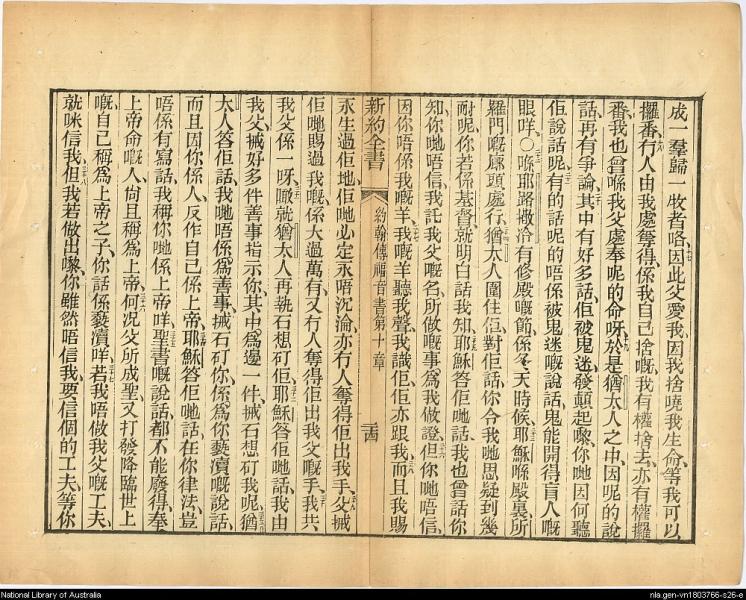 成一羣歸一牧者咯、因此父愛我、因我捨嘵我生命、等我可以
攞番、冇人由我處奪得、係我自己捨嘅、我有權捨去、亦有權攞
番、我也曾喺我父處奉呢的命呀、於是猶太人之中、因呢的說
話、再有爭論、其中有好多話、佢被鬼迷、發顛起嚟、你哋因何聽
佢說話呢、有的話、呢的唔係被鬼迷嘅說話、鬼能開得盲人嘅
眼咩、〇喺耶路撒冷有修殿嘅節、係冬天時候、耶穌喺殿裏、所
羅門嘅廊頭處行、猶太人圍住佢、對佢話、你令我哋思疑到幾
耐呢、你若係基督、就明白話我知、耶穌答佢哋話、我也曾話你
知、你哋唔信、我託我父嘅名、所做嘅事、爲我做證、但你哋唔信、
因你唔係我嘅羊、我嘅羊聽我聲、我識佢、佢亦跟我、而且我賜
新約全書 約翰傳福音書第十章
永生過佢地、佢哋必定永唔沉淪、亦冇人奪得佢出我手、父搣
佢哋賜過我嘅、係大過萬有、又冇人奪得佢出我父嘅手、我共
我父係一呀、嗽就猶太人再執石想矴佢、耶穌答佢哋話、我由
我父搣好多件善事指示你、其中爲邊一件、搣石想矴我呢、猶
太人答佢話、我哋唔係爲善事、搣石矴你、係爲你褻瀆嘅說話、
而且因你係人、反作自己係上帝、耶穌答佢哋話、在你律法、豈
唔係有寫話、我稱你哋係上帝咩、聖書嘅說話、都不能廢得、奉
上帝命嘅人、尙且稱爲上帝、何况父所成聖、又打發降臨世上
嘅、自己稱爲上帝之子、你話係褻瀆咩、若我唔做我父嘅工夫、
就咪信我、但我若做出嚟、你雖然唔信我、要信個的工夫、等你
National Library of Australia
nla.gen-vn1803766-s26-e